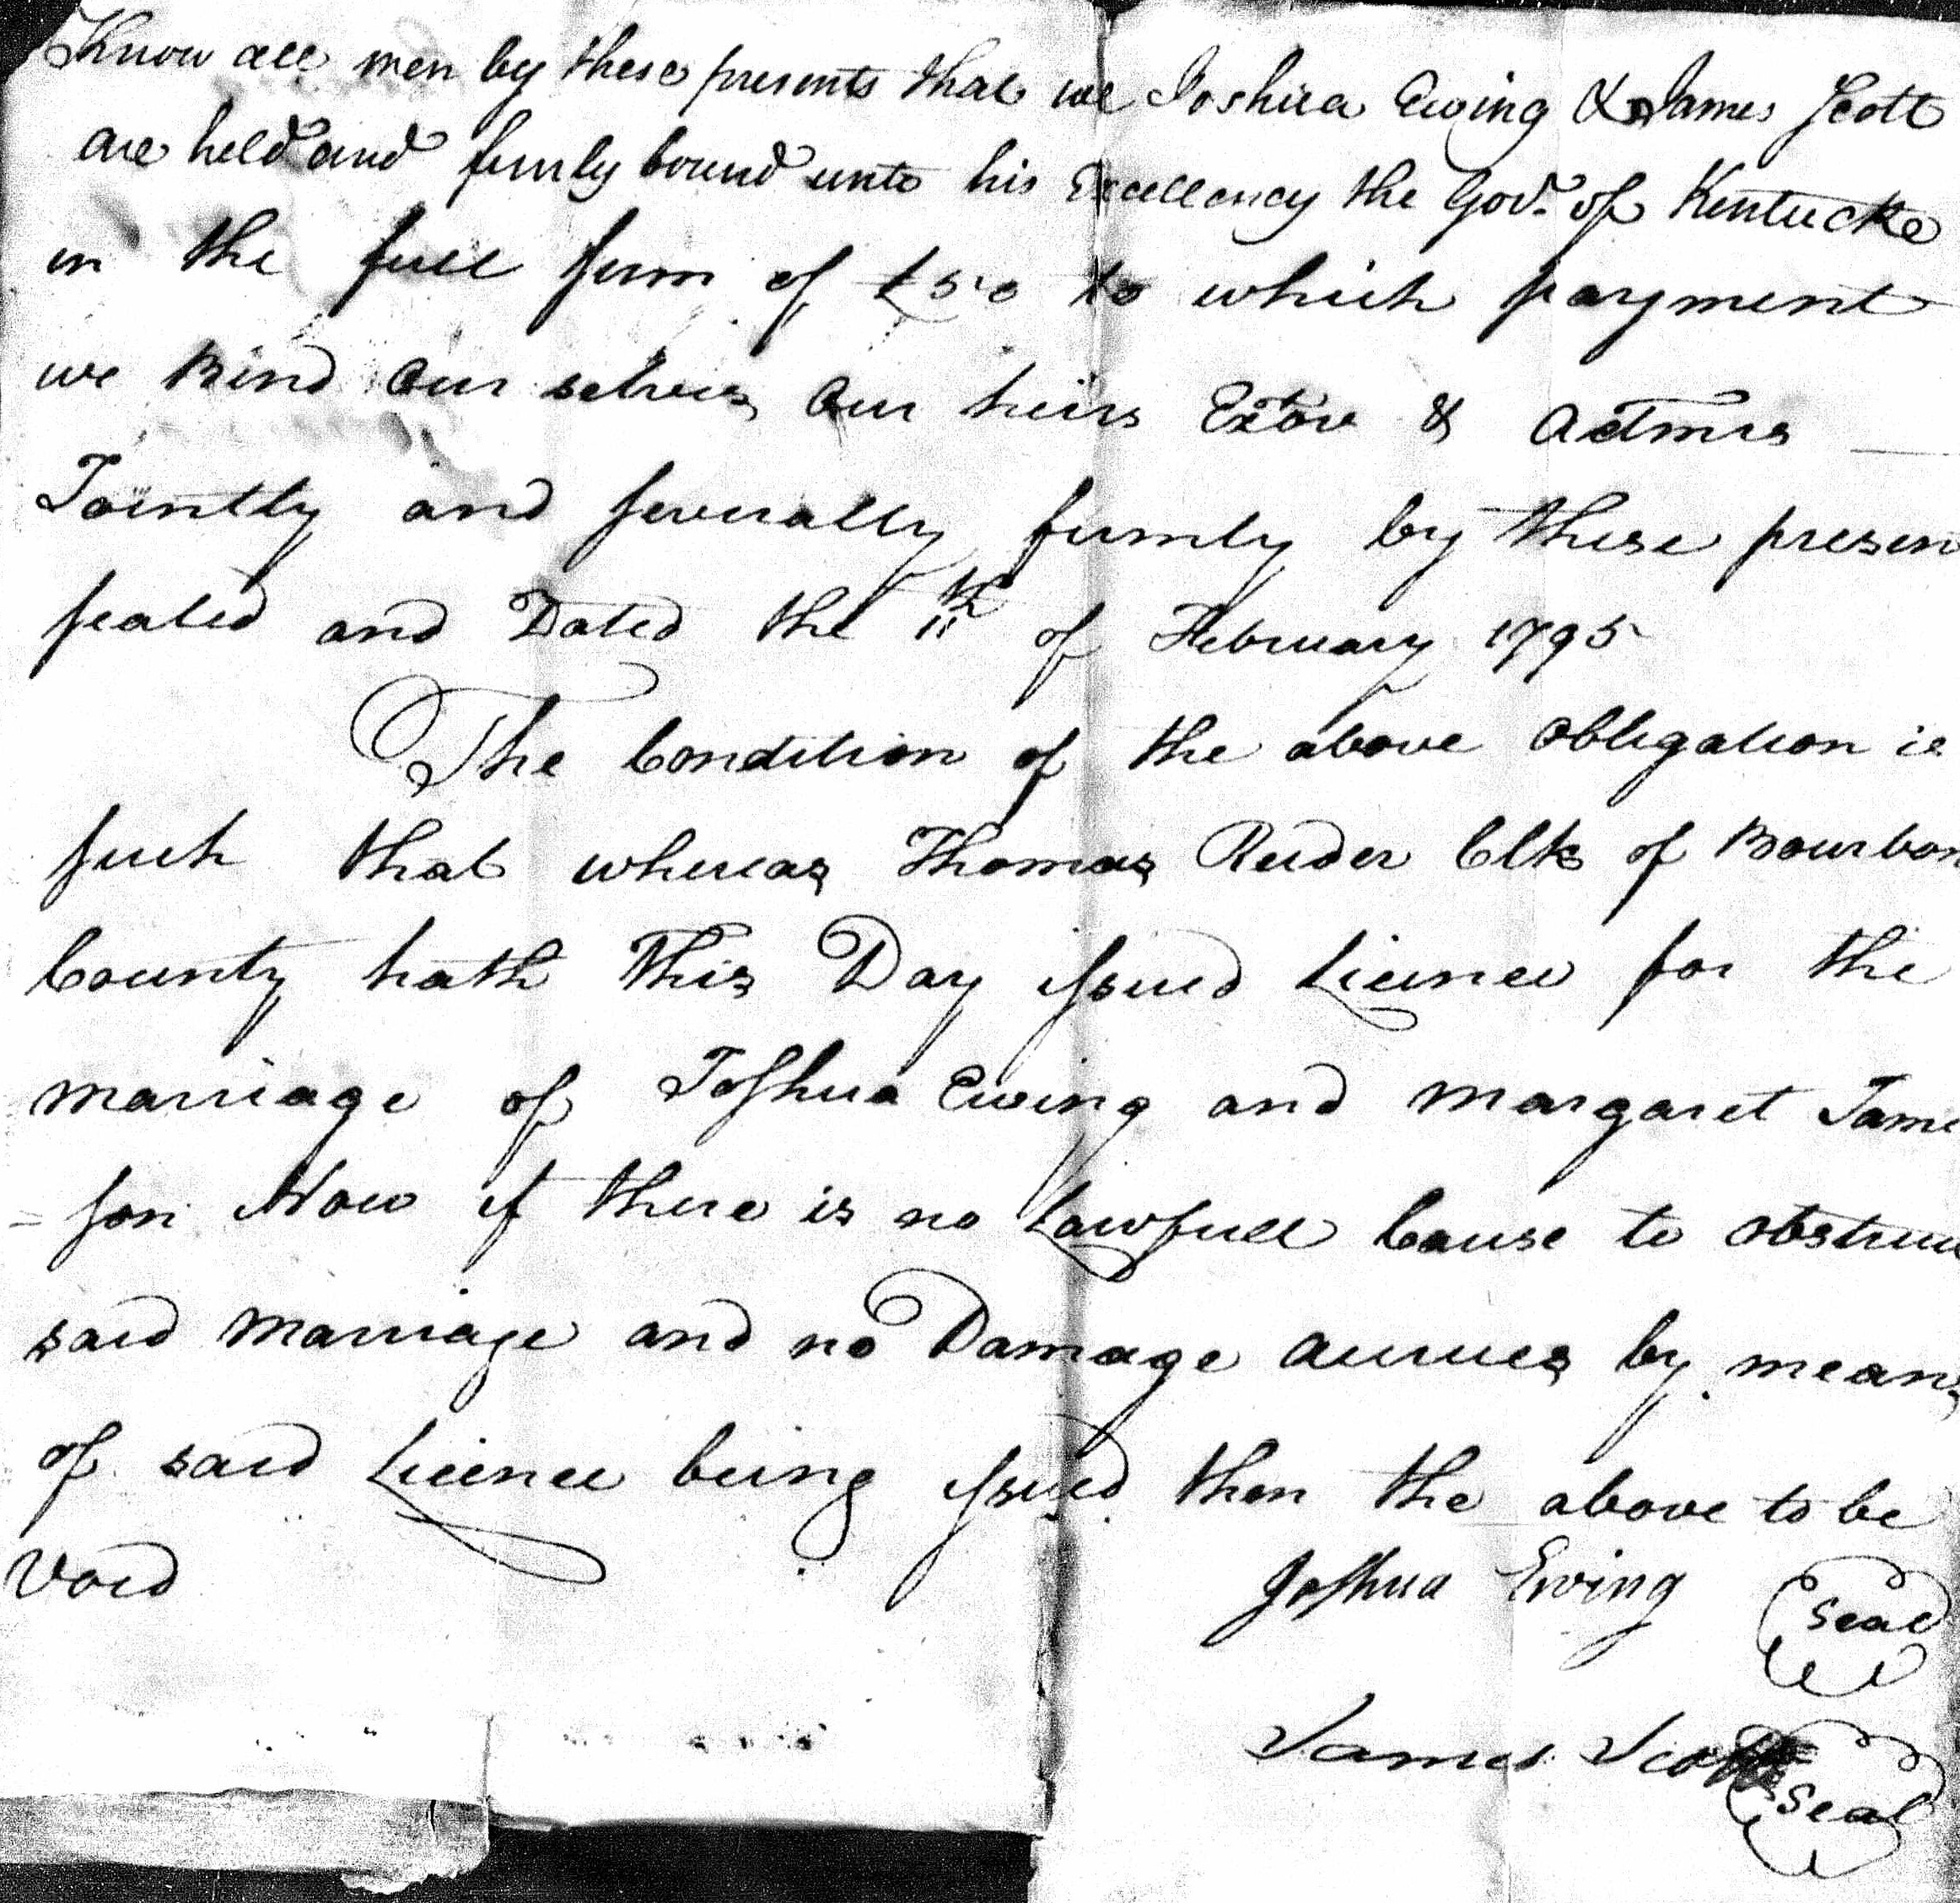 Know all men by these presents that we Joshua Ewing & James Scott
are held and firmly bound unto his Excellency the Gov.r of Kentucke
in the full sum of £50 to which payment
we Bind our selves, our heirs Extors & Admrs
Jointly and severally firmly by these presen
sealed and Dated the 11th of February 1795
The Condition of the above obligation is
such that whereas Thomas Clk of Bourbon
County hath this Day issued Licence for the
marriage of Joshua Ewing and Margaret Jame
=son Now if there is no Lawfull Cause to obstruc
said Marriage and no Damage accrues by means
of said Licence being issued then the above to be
Void
Joshua Ewing seal
James Scott seal